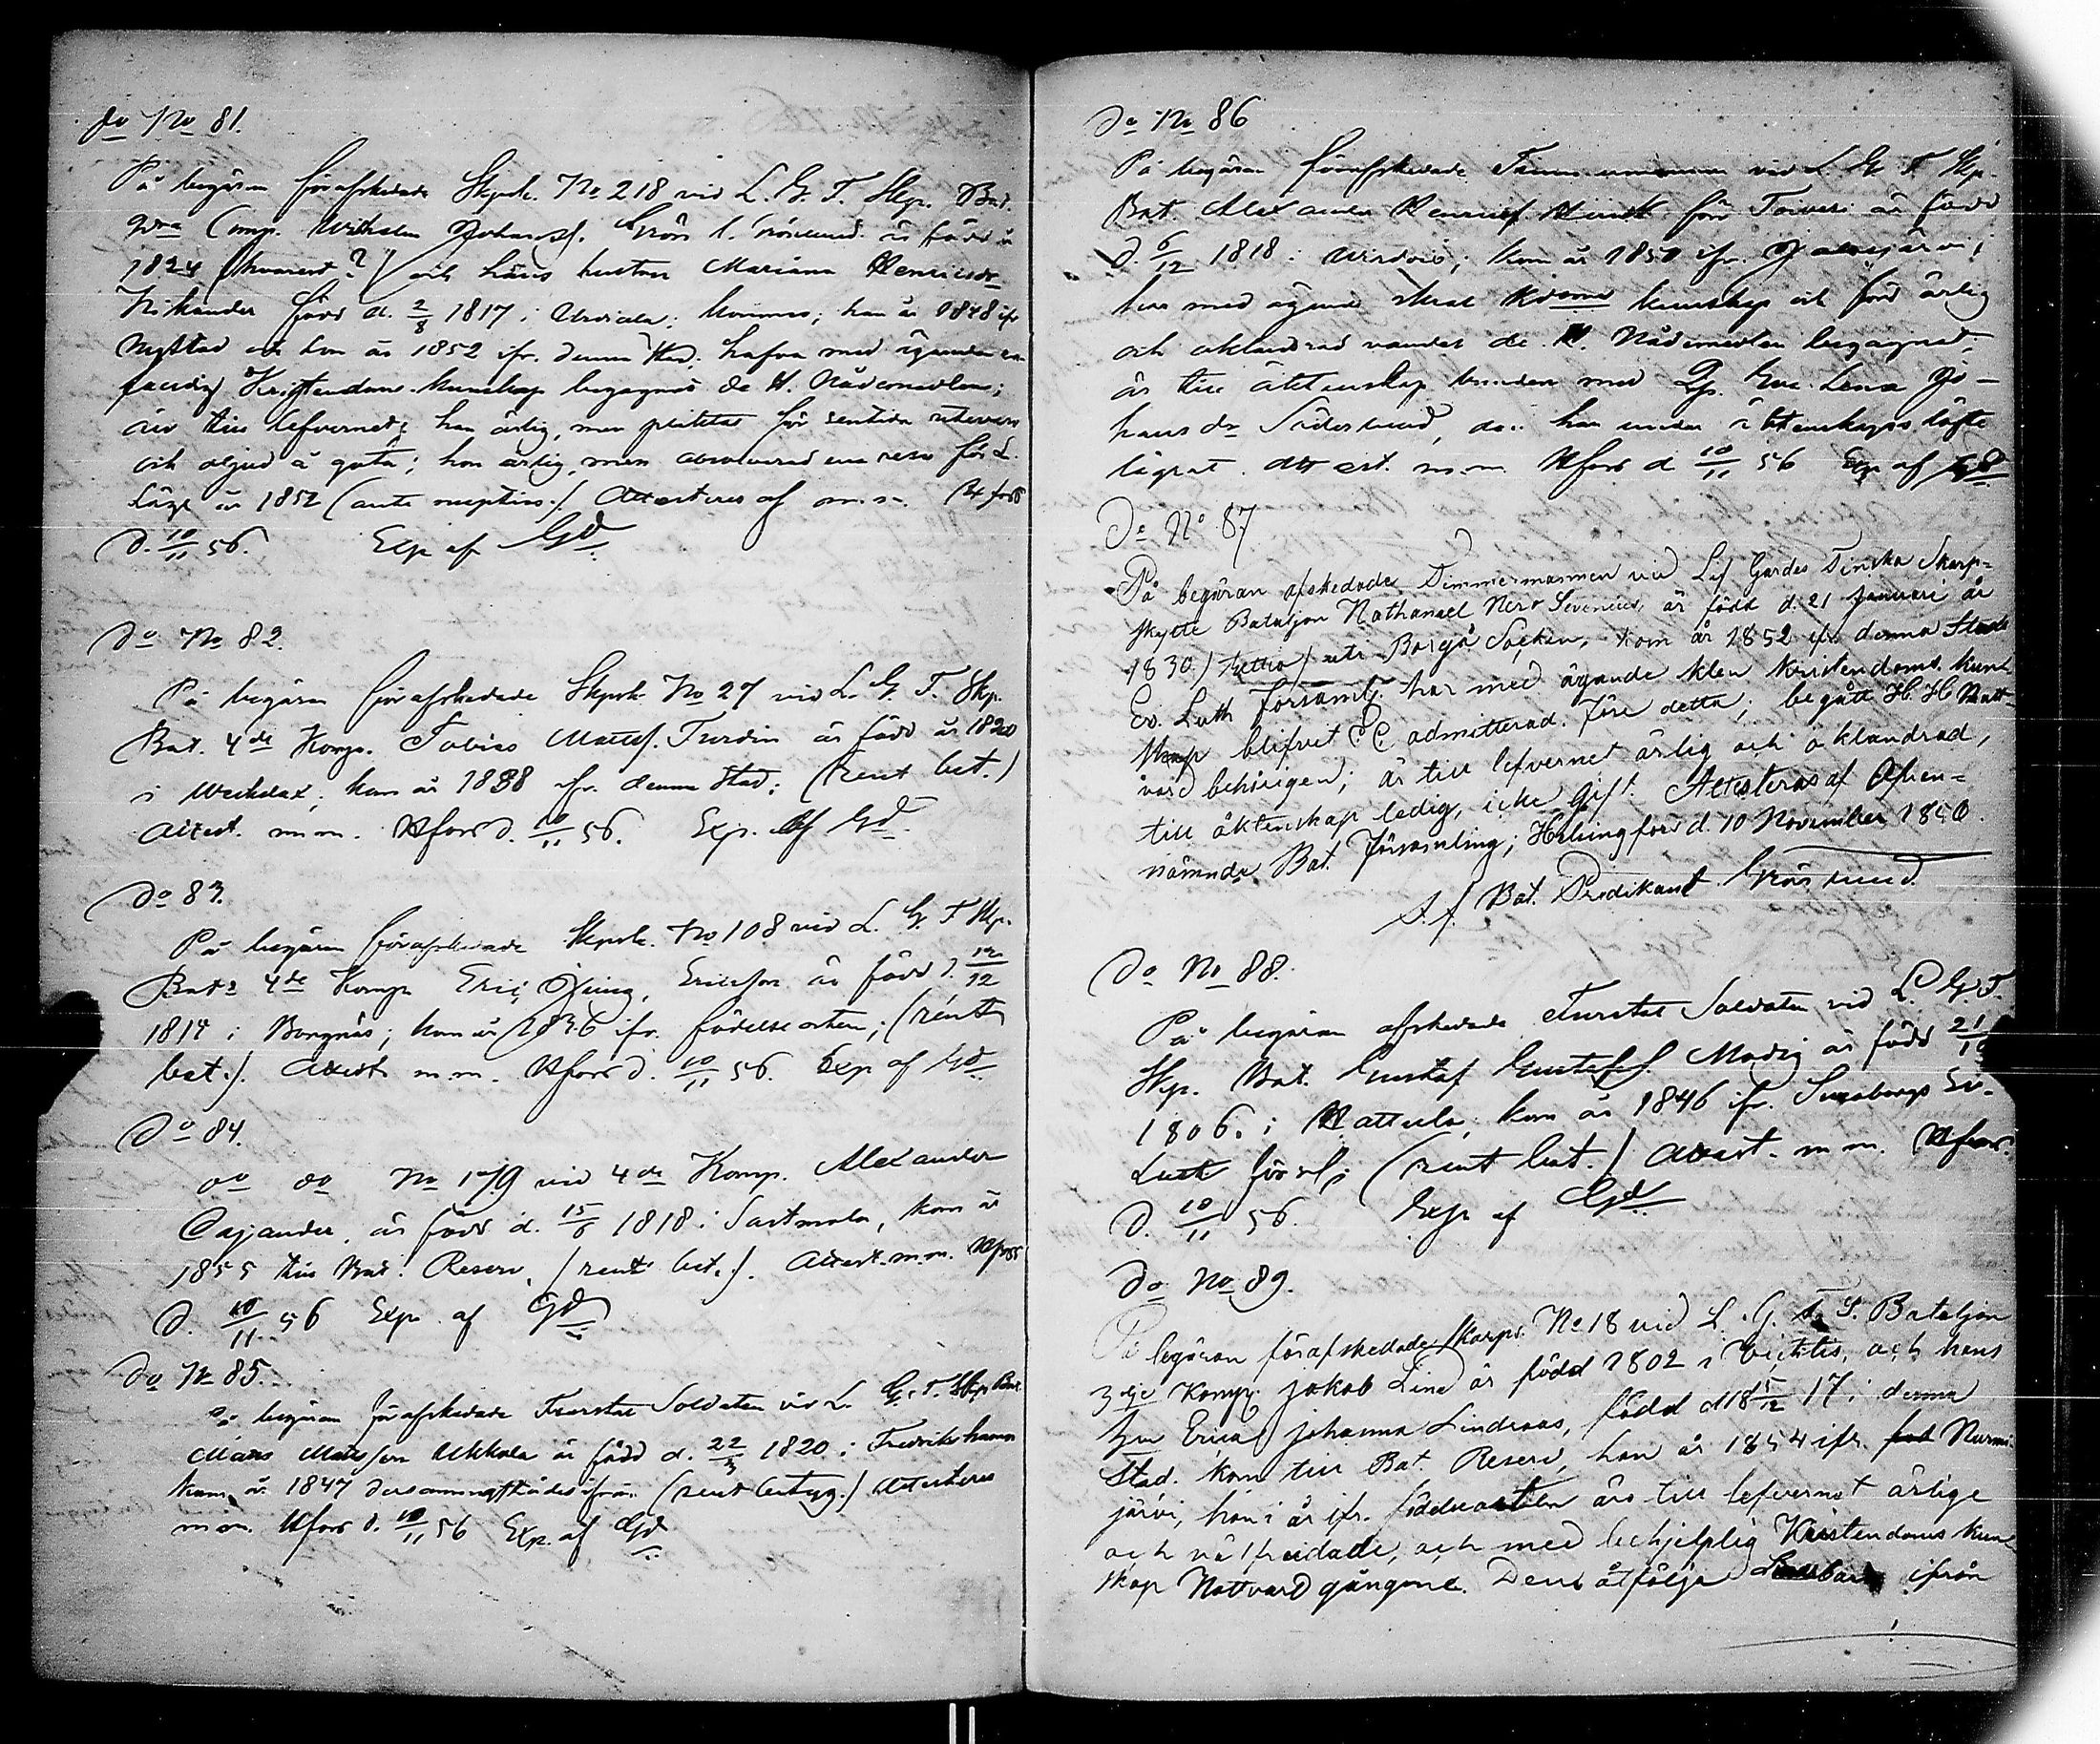 Do No 81.
På begäran förafskedade Skpsk. No 218 vid L. G. F. Skp. Bat.
Comp. Wilhelm Johanss. Grönlund är född år
1824 (hvarest?) och hans hustru Mariana Henricsdr
Nikander född d. 2/8 1817 i Urdiala; komne; han år 1848 ifr
Nystad och hon år 1852 ifr. denna stad; hafva med ägande en
Kristendoms kunskap begagnat de H. Nådemedlen;
äro till lefvernet; han ärlig, men pliktat för sentida
och oljud å gata; hon ärlig, men absolverad en resa för L.
läge år 1852 (ante nuptias). Attesteras af m.m. Hfors
d. 10/11 56. Exp af Gd.
Do No 82.
På begäran förafskedade Skpsk No 27 vid L. G. F. Skp.
Bat. 4de Komp. Tobias Matss. Turdin är född år 1820
i Weckelax; kom år 1838 ifr. denna stad; (rent bet.)
Attest. m.m. Hfors d. 10/11 56. Exp. af Gd.
Do 83.
På begäran förafskedade Skpsk. No 108 vid L. G. F. Skp.
Bat:s 4de Komp Eric Ericsson är född d. 12/12
1814 i Borgnäs; kom år 1836 ifr. födelseorten; (rent
bet.). Attest. m.m. Hfors d. 10/11 56. Exp af Gd.
Do 84.
do do No 179 vid 4de Komp. Alexander
Cajander, är född d. 15/6 1818 i Sastmola, kom år
1855 till Bat. Reserv, (rent bet.). Attest. m.m. Hfors
d. 10/11 56 Exp. af Gd.
Do No 85.
På begäran förafskedade Furstat Soldaten vid L. G. F. Skp Bat.
Mats Matsson Ukkola är född d. 22/3 1820 i Fredrikshamn
kom år 1847 dersammastädes ifrån. (rent betyg.) Attesteras
m.m. Hfors d. 10/11 56 Exp. af Gd.
Do No 86
På begäran förafskedade Timmermannen vid L. G. F. Skp.
Bat. Alexander Henricss. för Toiveri är född
d. 6/12 1818 i Wirdois; kom år 1850 ifr. Jalasjärvi;
har med ägande kunskap och förd ärlig
och oklandrad vandel de H. Nådemedlen begagnat;
är till äktenskap bunden med Eva Lena Jo-
hansdr Söderlund, den han under äktenskaps löfte
lägrat. Attest. m.m. Hfors d 10/11 56 Exp af Gd
Do No 87
På begäran afskedade Timmermannen vid Lif Gardes Finska Skarp-
skytte Bataljon Nathanael Nero Sevenius, är född d. 21 Januari år
1830 (trettio) uti Borgå Socken, kom år 1852 ifr denna Stads
Ev. Luth Församl. har med ägande klen Kristendoms kun-
skap blifvit admitterad före detta; begått H. H Natt-
vard behörigen; är till lefvernet ärlig och oklandrad,
till äktenskap ledig, icke gift. Attesteras af Ofvan-
nämnde Bat. Församling; Helsingfors d. 10 November 1856.
Bat. Predikant Grönlund.
Do No 88.
På begäran afskedade Furstat Soldaten vid L. G. F.
Skp. Bat. Gustaf Gustafss. Modig är född 21/10
1806. i Hattula; kom år 1846 ifr. Sveaborgs Ev.
Luth förs:g; (rent bet.) Attest. m.m. Hfors.
d. 10/11 56. Exp af Gd.
Do No 89.
På begäran förafskedade Skarps. No 18 vid L. G. F. S. Bataljon
3dje Komp. Jakob Lind är född 1802 i Vichtis, och hans
hu Erica Johanna Lindroos, född d 18 5/12 17 i denna
Stad. kom till Bat. Reserv, han år 1854 ifr. Nurmi-
järvi, hon i år ifr. födelseorten äro till lefvernet ärlige
och välfreidade, och med behjelplig Kristendoms kun-
skap Nattvardgångne. Dem åtfölja ifrån